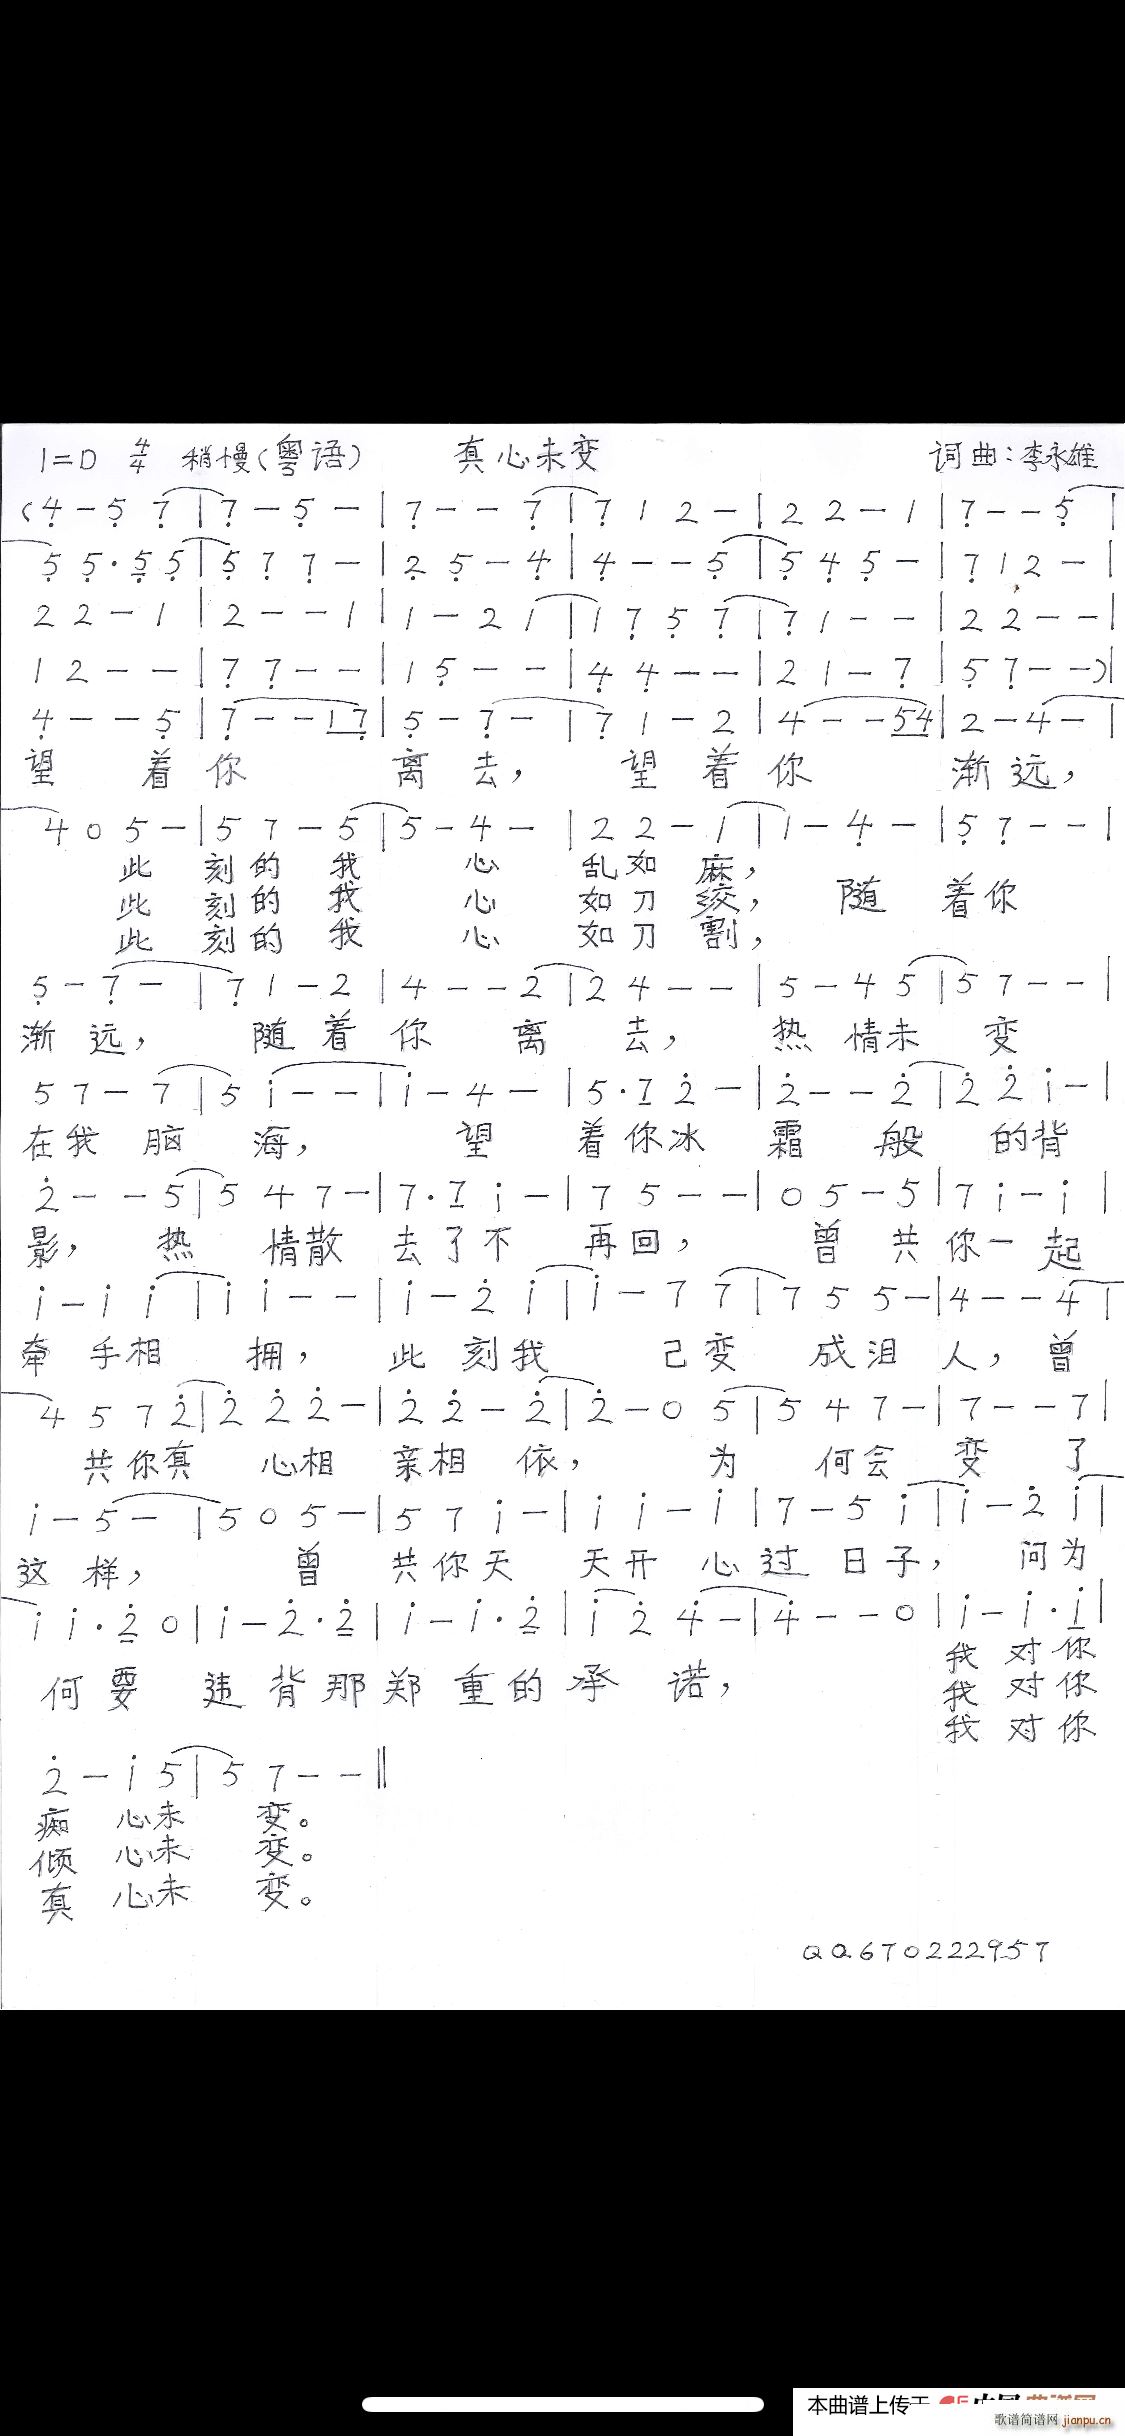 1=D 4/4 稍慢(粤语) 真心未变 词曲:李永雄
(4 - 5 7 | 7 - 5 - | 7 - - 7 | 7 1 2 - | 2 2 - 1 | 7 - - 5 |
5 5 · 5 5 | 5 7 7 - | 2 5 - 4 | 4 - - 5 | 5 4 5 - | 7 1 2 - |
2 2 - 1 | 2 - - 1 | 1 - 2 1 | 1 7 5 7 | 7 1 - - | 2 2 - - |
1 2 - - | 7 7 - - | 1 5 - - | 4 4 - - | 2 1 - 7 | 5 7 - - )|
4 - - 5 | 7 - - 1 7 | 5 - 7 - | 7 1 - 2 | 4 - - 5 4 | 2 - 4 - |
望 着 你 离 去, 望 着 你 渐 远,
4 0 5 - | 5 7 - 5 | 5 - 4 - | 2 2 - 1 | 1 - 4 - | 5 7 - - |
此 刻 的 我 心 乱 如 麻,
此 刻 的 我 心 如 刀 绞, 随 着 你
此 刻 的 我 心 如 刀 割,
5 - 7 - | 7 1 - 2 | 4 - - 2 | 2 4 - - | 5 - 4 5 | 5 7 - - |
渐 远, 随 着 你 离 去, 热 情 未 变
5 7 - 7 | 5 i - - | i - 4 - | 5 · 7 2 - | 2 - - 2 | 2 2 i - |
在 我 脑 海, 望 着 你 冰 霜 般 的 背
2 - - 5 | 5 4 7 - | 7 · 7 i - | 7 5 - - | 0 5 - 5 | 7 i - i |
影, 热 情 散 去 了 不 再 回, 曾 共 你 一 起
i - i i | i i - - | i - 2 i | i - 7 7 | 7 5 5 - | 4 - - 4 |
牵 手 相 拥, 此 刻 我 己 变 成 泪 人, 曾
4 5 7 2 | 2 2 2 - | 2 2 - 2 | 2 - 0 5 | 5 4 7 - | 7 - - 7 |
共 你 真 心 相 亲 相 依, 为 何 会 变 了
i - 5 - | 5 0 5 - | 5 7 i - | i i - i | 7 - 5 i | i - 2 i |
这 样, 曾 共 你 天 天 开 心 过 日 子, 问 为
i i · 2 0 | i - 2 · 2 | i - i · 2 | i 2 4 - | 4 - - 0 | i - i · i |
何 要 违 背 那 郑 重 的 承 诺, 我 对 你
我 对 你
我 对 你
2 - i 5 | 5 7 - - ‖
痴 心 未 变。
倾 心 未 变。
真 心 未 变。
QQ670222957
本曲谱上传于
歌谱简谱网 jianpu.cn